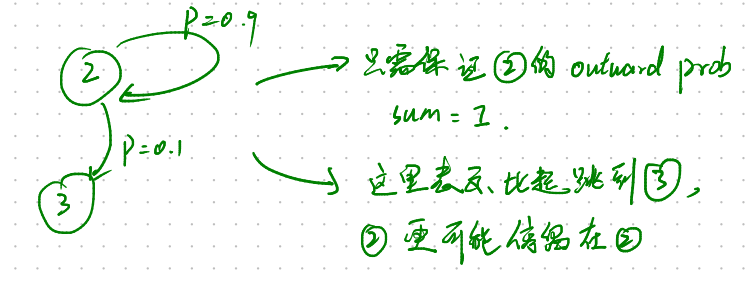 P=0.9
2
P=0.1
3
只需保证②的 outward prob
sum = 1.
这里表示、比起跳到③,
② 更可能停留在②